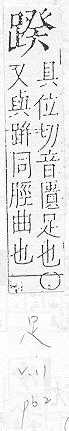 具位切音匱足也
又與同脛曲也
足
v.11